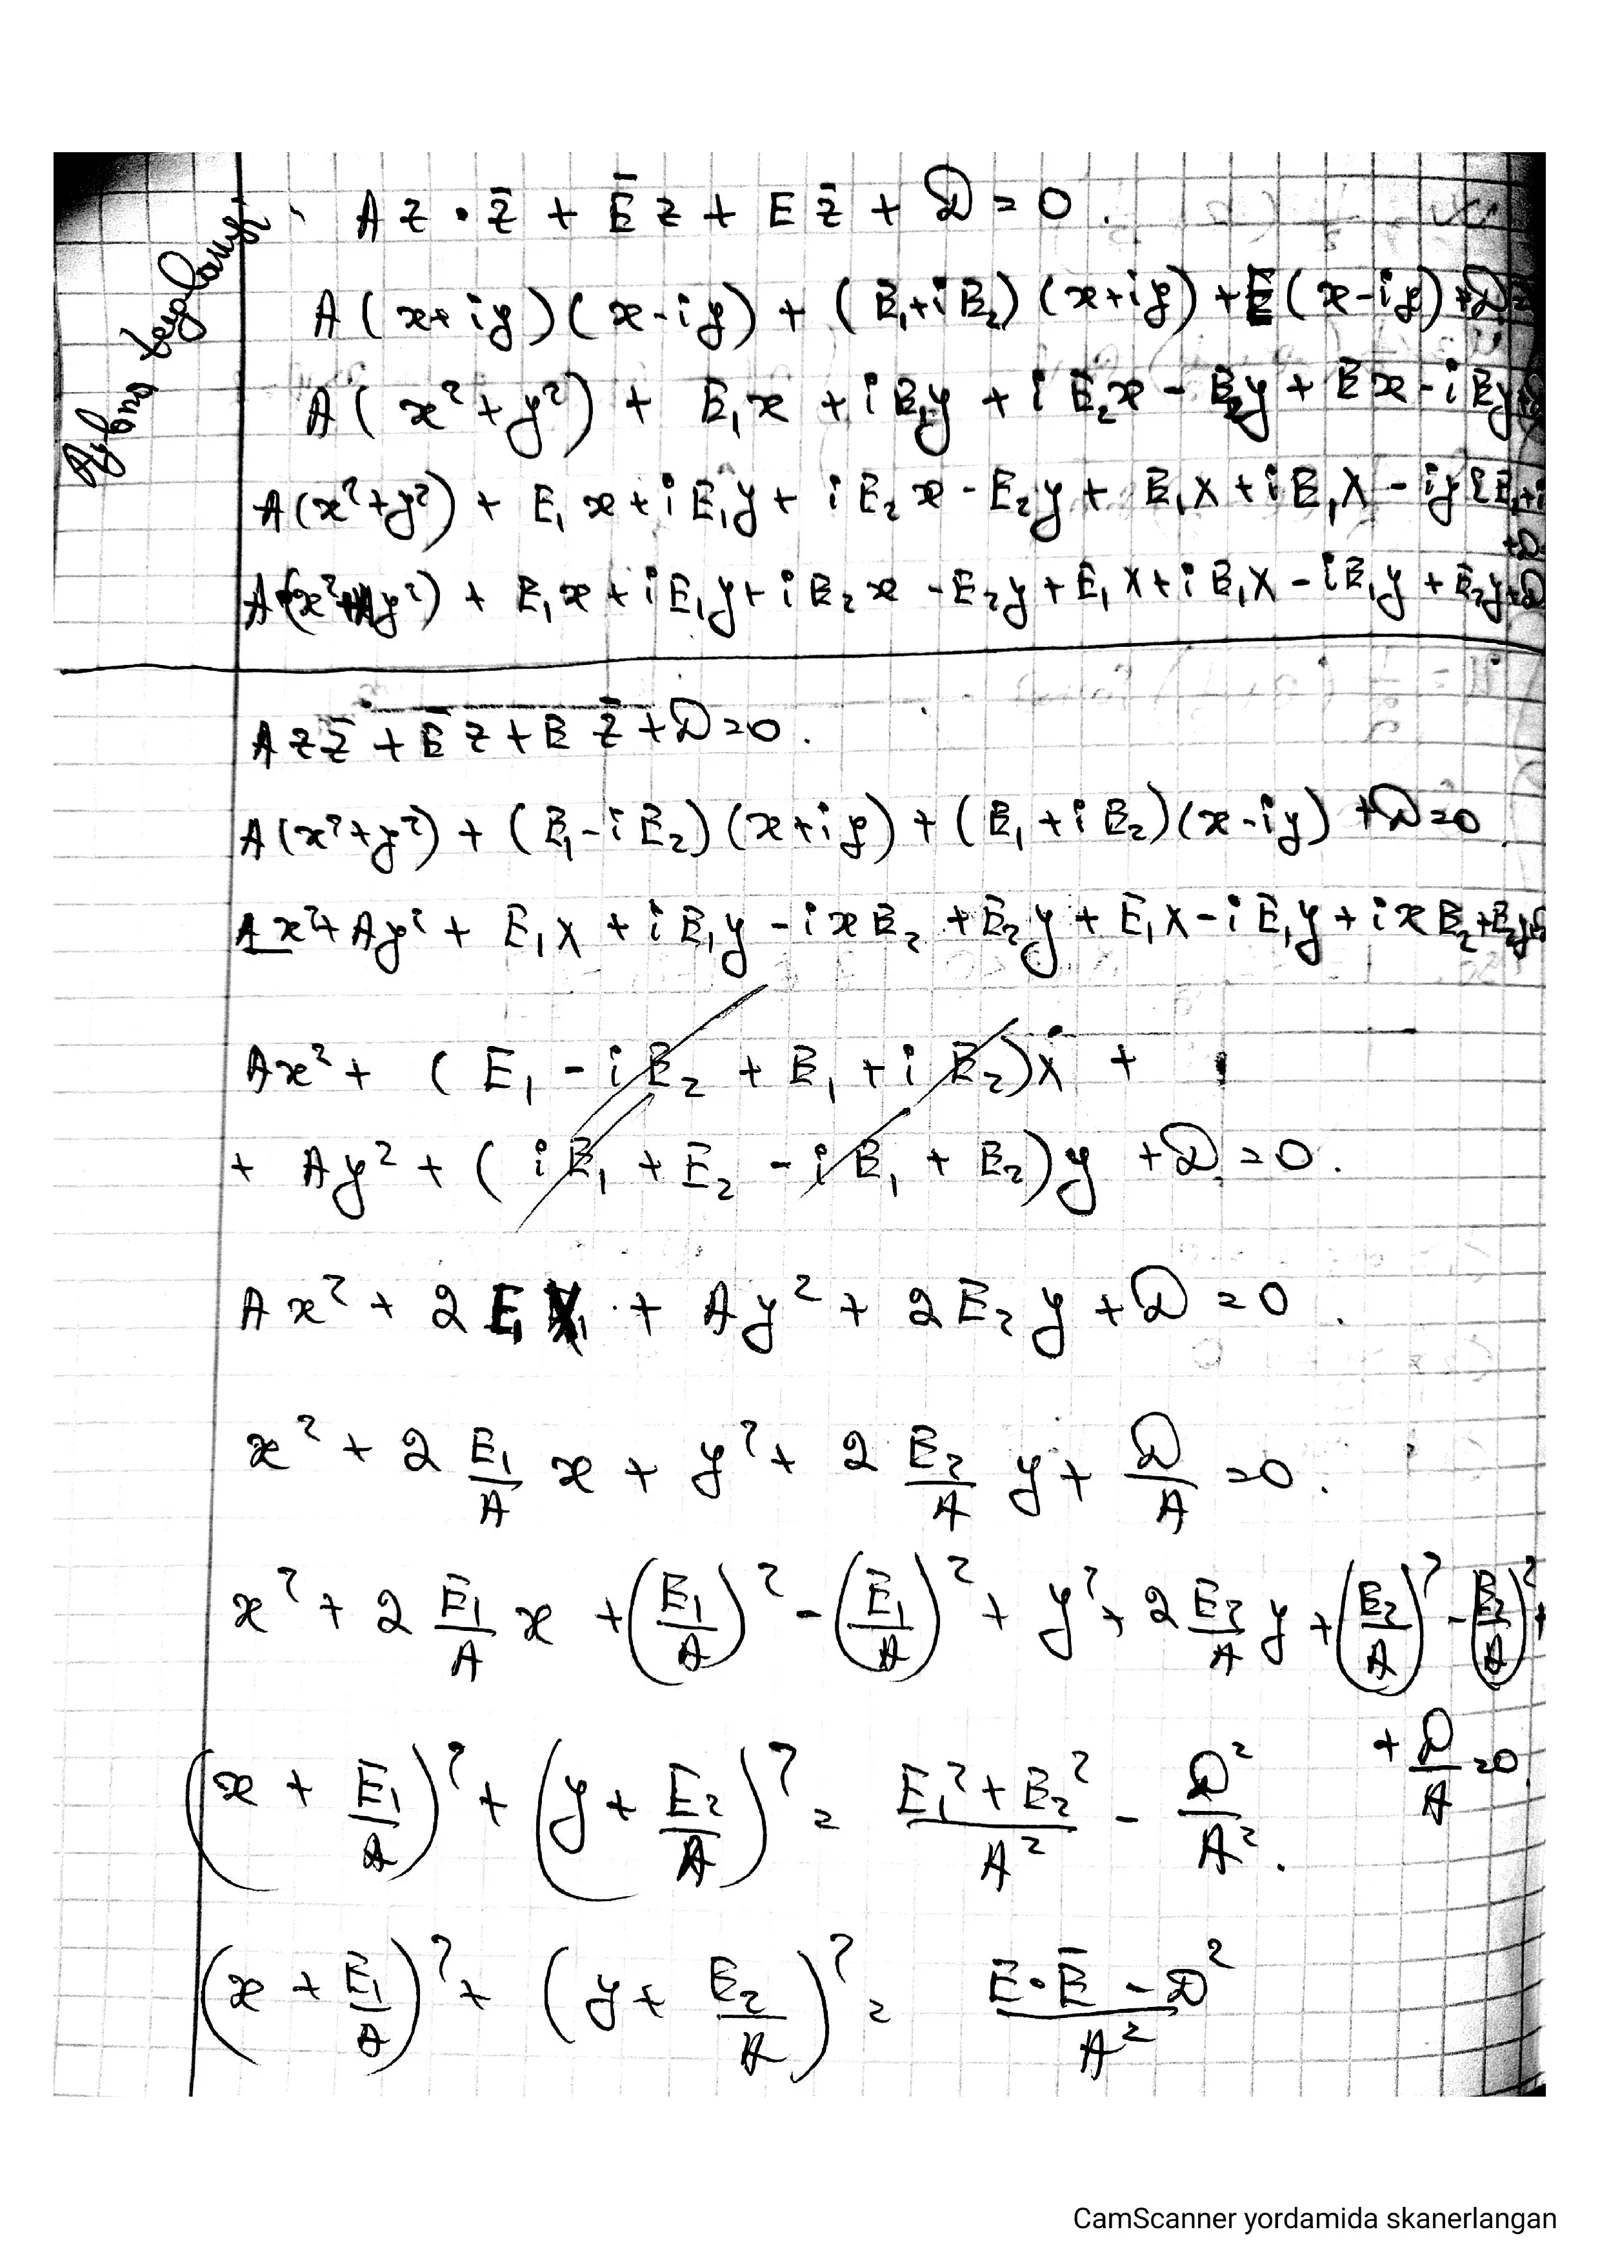 Aylana tenglamasi
A z · z̄ + Ē z + E z̄ + D = 0.
A(x+iy)(x-iy) + (E₁+iE₂)(x+iy) + E(x-iy) + D=
A(x²+y²) + E₁x + iE₁y + iE₂x - E₂y + Ex - iEy
A(x²+y²) + E₁x + iE₁y + iE₂x - E₂y + E₁x + iE₁x - iy(E₁+i
+D
A(x²+y²) + E₁x + iE₁y + iE₂x - E₂y + E₁x + iE₁x - iE₁y + E₂y+D
A z z̄ + Ē z + E z̄ + D = 0.
A(x²+y²) + (E₁-iE₂)(x+iy) + (E₁+iE₂)(x-iy) + D=0
Ax²+Ay² + E₁x + iE₁y - ixE₂ + E₂y + E₁x - iE₁y + ixE₂+E₂y+
Ax² + (E₁ - iE₂ + E₁ + iE₂)x +
+ Ay² + (iE₁ + E₂ - iE₁ + E₂)y + D = 0.
Ax² + 2E₁x + Ay² + 2E₂y + D = 0.
x² + 2 E₁/A x + y² + 2 E₂/A y + D/A = 0.
x² + 2 E₁/A x + (E₁/A)² - (E₁/A)² + y² + 2 E₂/A y + (E₂/A)² - (E₂/A)² +
+ D/A = 0
(x + E₁/A)² + (y + E₂/A)² = E₁²+E₂²/A² - D²/A².
(x + E₁/A)² + (y + E₂/A)² = E·Ē - D²/A²
CamScanner yordamida skanerlangan